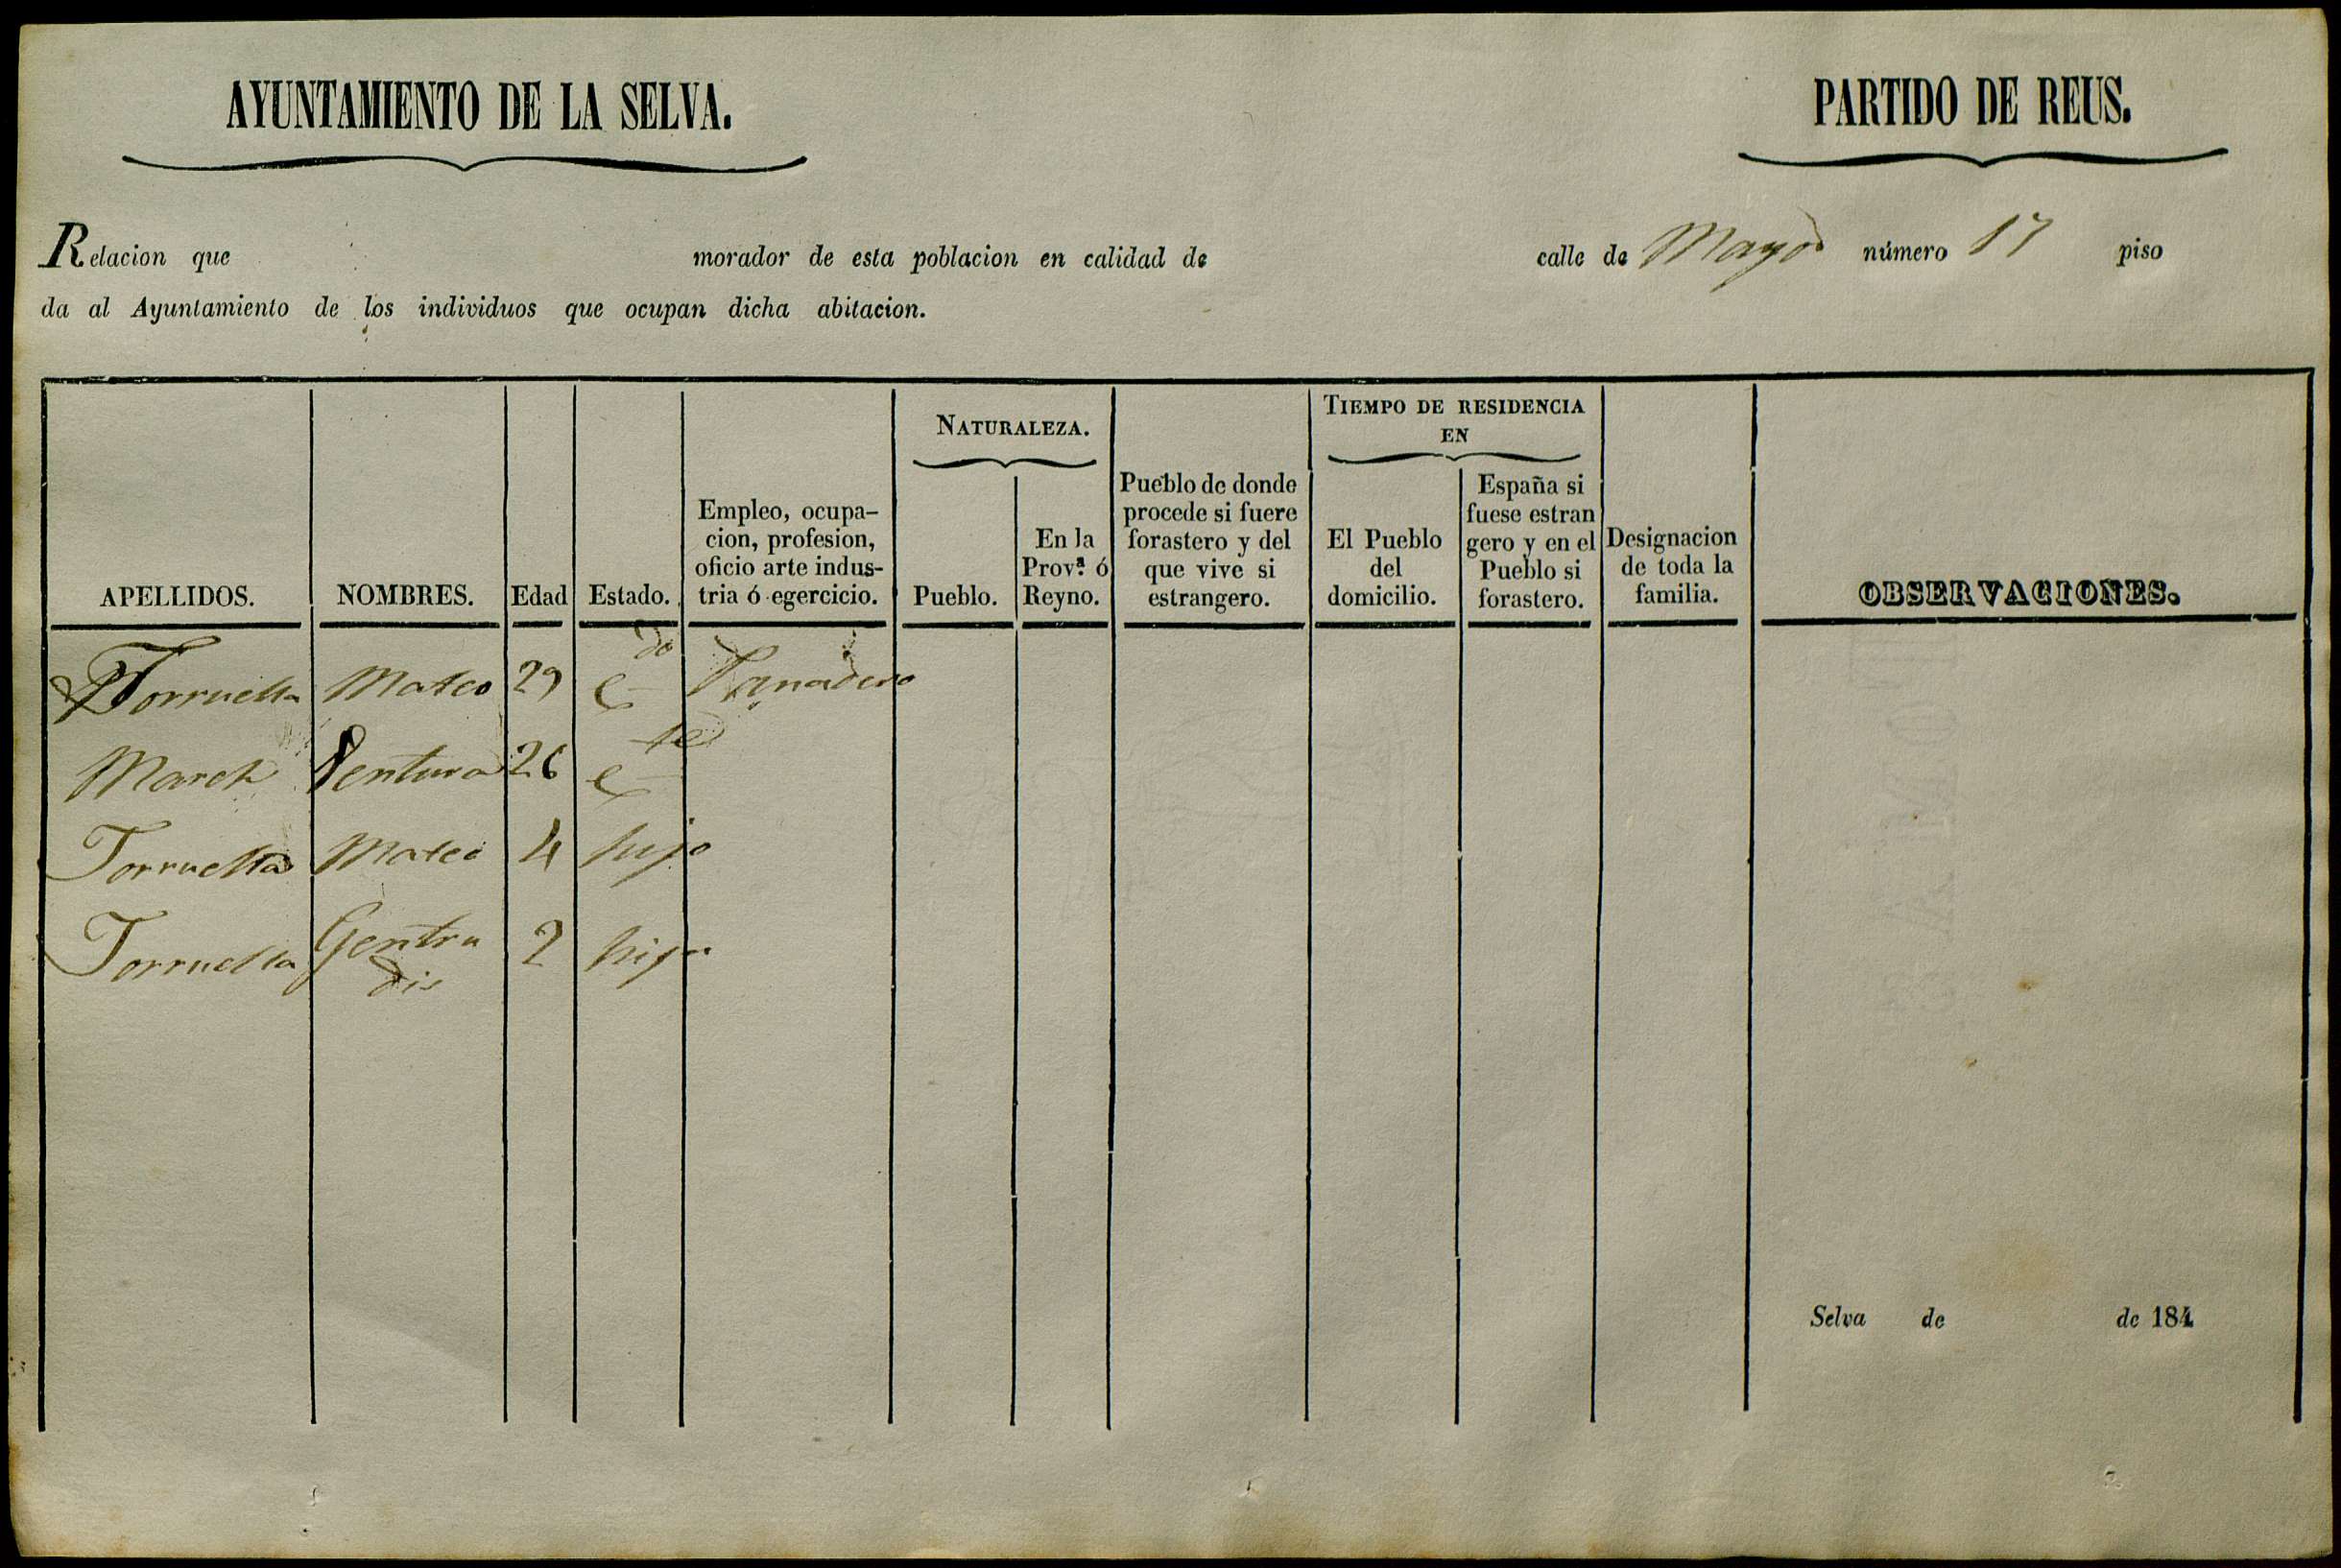 AYUNTAMIENTO DE LA SELVA.
PARTIDO DE REUS.
Relacion que morador de esta poblacion en calidad de calle de Mayor número 17 piso
da al Ayuntamiento de los individuos que ocupan dicha abitacion.
APELLIDOS.
NOMBRES.
Edad
Estado.
Empleo, ocupa-
cion, profesion,
oficio arte indus-
tria ó egercicio.
NATURALEZA.
Pueblo.
En la
Prov.ª ó
Reyno.
Pueblo de donde
procede si fuere
forastero y del
que vive si
estrangero.
TIEMPO DE RESIDENCIA
EN
El Pueblo
del
domicilio.
España si
fuese estran
gero y en el
Pueblo si
forastero.
Designacion
de toda la
familia.
OBSERVACIONES.
Torruella Mateo 29 C do Panadero
March Ventura 26 C te
Torruella Mateo 4 hijo
Torruella Gertru
dis 2 hija
Selva de de 184